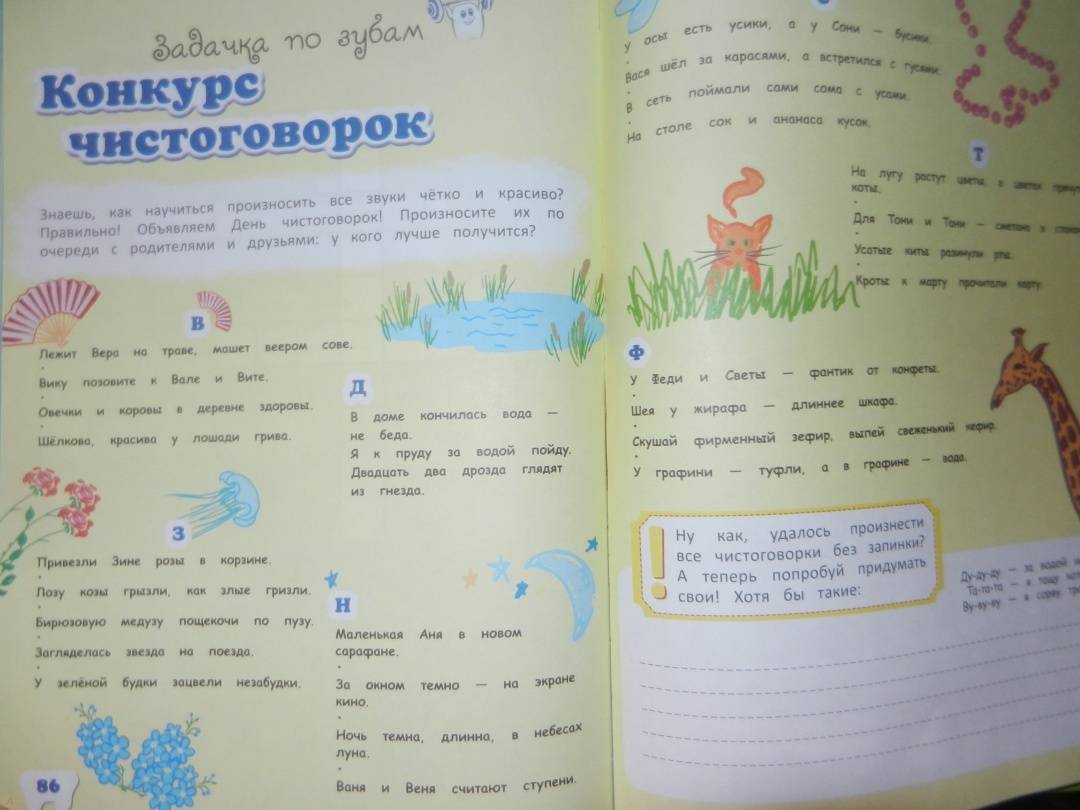 Задачка по зубам
Конкурс
чистоговорок
Знаешь, как научиться произносить все звуки чётко и красиво?
Правильно! Объявляем День чистоговорок! Произносите их по
очереди с родителями и друзьями: у кого лучше получится?
В
Лежит Вера на траве, машет веером сове.
Вику позовите к Вале и Вите.
Овечки и коровы в деревне здоровы.
Шёлкова, красива у лошади грива.
Д
В доме кончилась вода —
не беда.
Я к пруду за водой пойду.
Двадцать два дрозда глядят
из гнезда.
З
Привезли Зине розы в корзине.
Лозу козы грызли, как злые гризли.
Бирюзовую медузу пощекочи по пузу.
Загляделась звезда на поезда.
У зелёной будки зацвели незабудки.
Н
Маленькая Аня в новом
сарафане.
За окном темно — на экране
кино.
Ночь темна, длинна, в небесах
луна.
Ваня и Веня считают ступени.
86
У осы есть усики, а у Сони — бусики.
Вася шёл за карасями, а встретился с гусями.
В сеть поймали сами сома с усами.
На столе сок и ананаса кусок.
Т
На лугу растут цветы, в цветах
коты.
Для Тони и Тани — сметана в
Усатые киты разинули рты.
Кроты к марту прочитали карту.
Ф
У Феди и Светы — фантик от конфеты.
Шея у жирафа — длиннее шкафа.
Скушай фирменный зефир, выпей свеженький кефир.
У графини — туфли, а в графине — вода.
!
Ну как, удалось произнести
все чистоговорки без запинки?
А теперь попробуй придумать
свои! Хотя бы такие:
Ду-ду-ду — за водой
Та-та-та — я тащу
Ву-ву-ву — я сорву